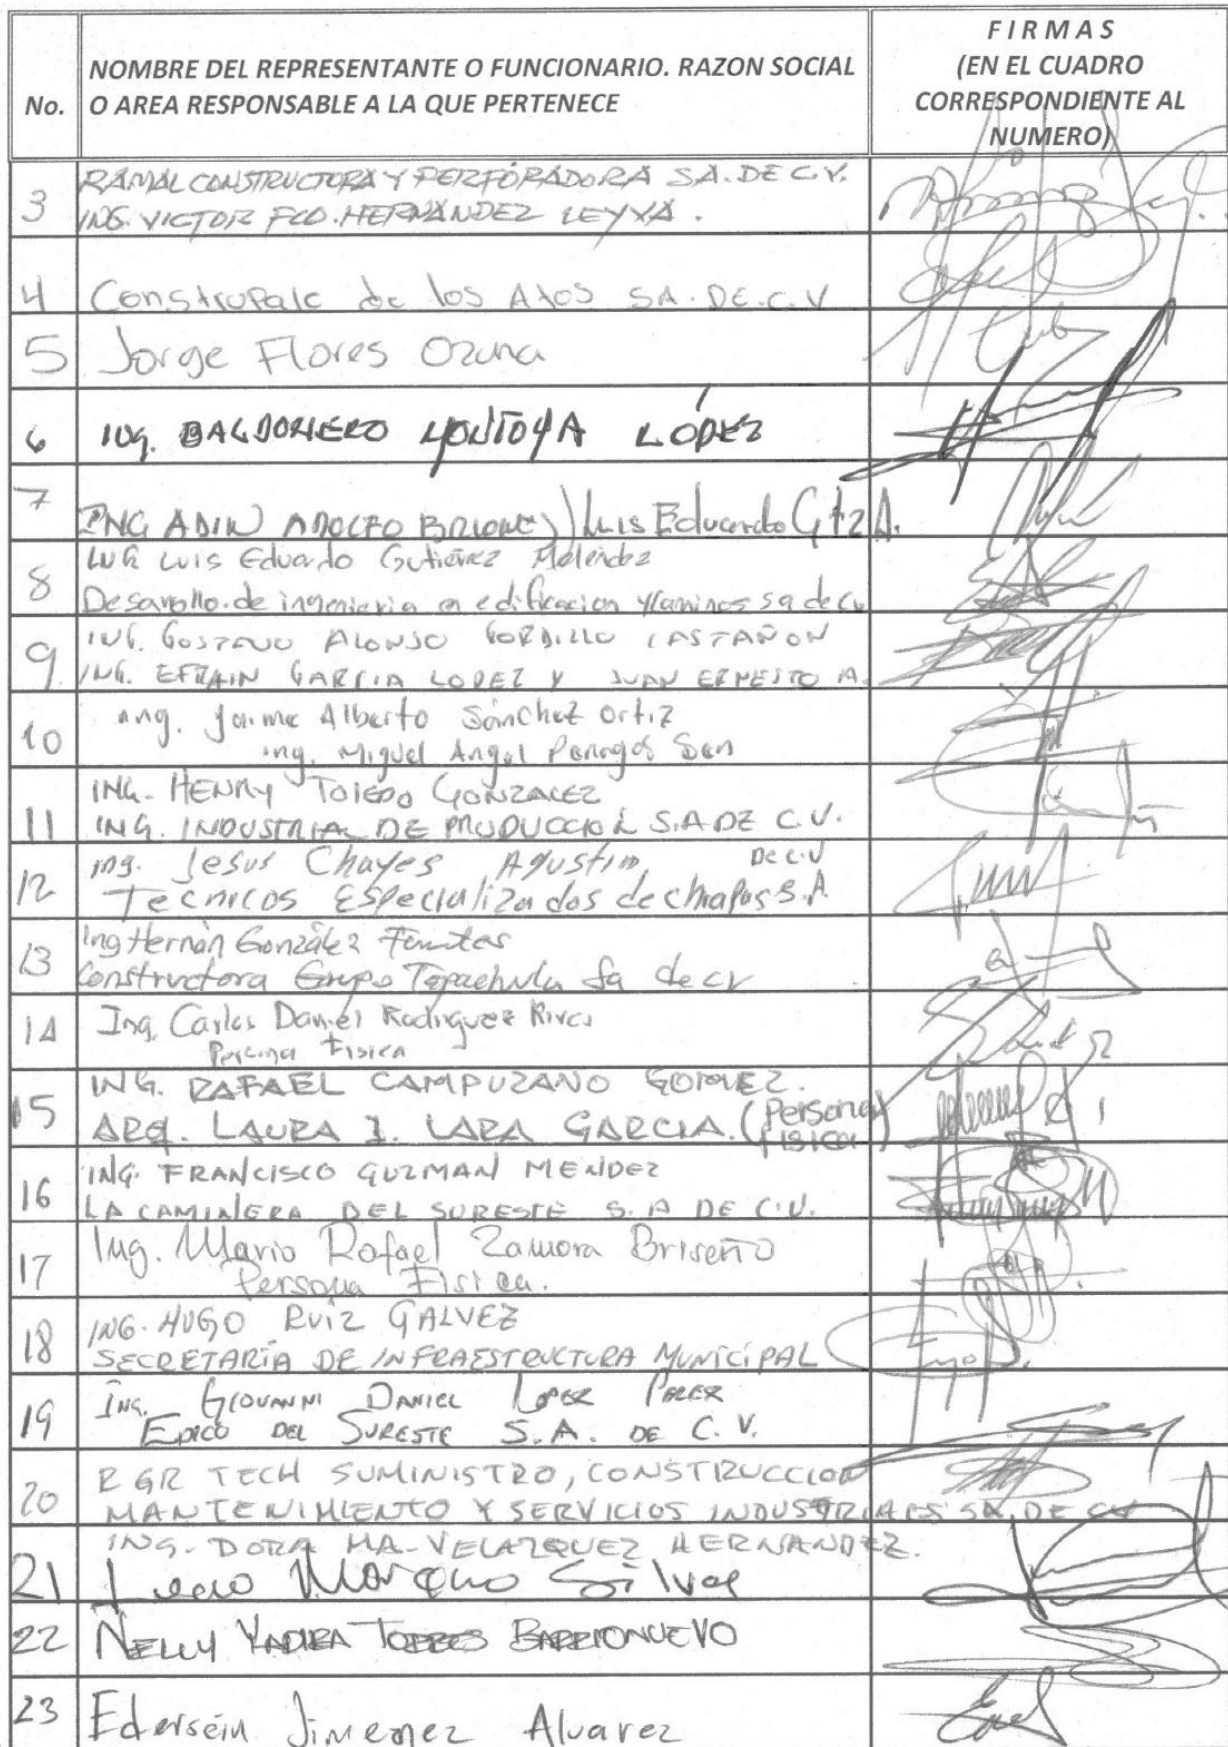 No.
NOMBRE DEL REPRESENTANTE O FUNCIONARIO. RAZON SOCIAL
O AREA RESPONSABLE A LA QUE PERTENECE
FIRMAS
(EN EL CUADRO
CORRESPONDIENTE AL
NUMERO)
3
RAMAL CONSTRUCTORA Y PERFORADORA SA. DE C.V.
ING. VICTOR FCO. HERNANDEZ LEYVA.
4 Construpale de los Altos SA. DE. C.V
5 Jorge Flores Ozuna
6 ING. BALDOMERO MONTOYA LÓPEZ
7
ING ADIN ADOLFO BRIONES) Luis Eduardo Gtz A.
8
Luis Eduardo Gutiérrez Meléndez
Desarrollo de ingenieria en edificacion y caminos sa de cv
9
ING. GUSTAVO ALONSO GORDILLO CASTAÑON
ING. EFRAIN GARCIA LOPEZ Y JUAN ERNESTO A.
10
ing. Jaime Alberto Sánchez Ortiz
ing. Miguel Angel
11
ING. HENRY TOLEDO GONZALEZ
ING. INDUSTRIAL DE PRODUCCION S.A DE C.V.
12
ing. Jesus Chayes Agustin DE C.V
Tecnicos Especializados de chiapas S.A
13
Ing Hernán González
Constructora Grupo Tapachula Sa de cv
14
Ing. Carlos Daniel Rodriguez Rivas
Persona Fisica
15
ING. RAFAEL CAMPUZANO GOMEZ.
ARQ. LAURA I. LARA GARCIA. (Persona
FISICA)
16
ING. FRANCISCO GUZMAN MENDEZ
LA CAMINERA DEL SURESTE S.A DE C.V.
17
Ing. Mario Rafael Zamora Briseño
Persona Física.
18
ING. HUGO RUIZ GALVEZ
SECRETARÍA DE INFRAESTRUCTURA MUNICIPAL
19
ING. GIOVANNI DANIEL LOPEZ PEREZ
EPICO DEL SURESTE S.A. DE C.V.
20
RGR TECH SUMINISTRO, CONSTRUCCION
MANTENIMIENTO Y SERVICIOS INDUSTRIALES SA DE CV
ING. DORA MA. VELAZQUEZ HERNANDEZ.
21 Silva
22 NELLY YADIRA TORRES BARRIONUEVO
23 Edersein Jimenez Alvarez